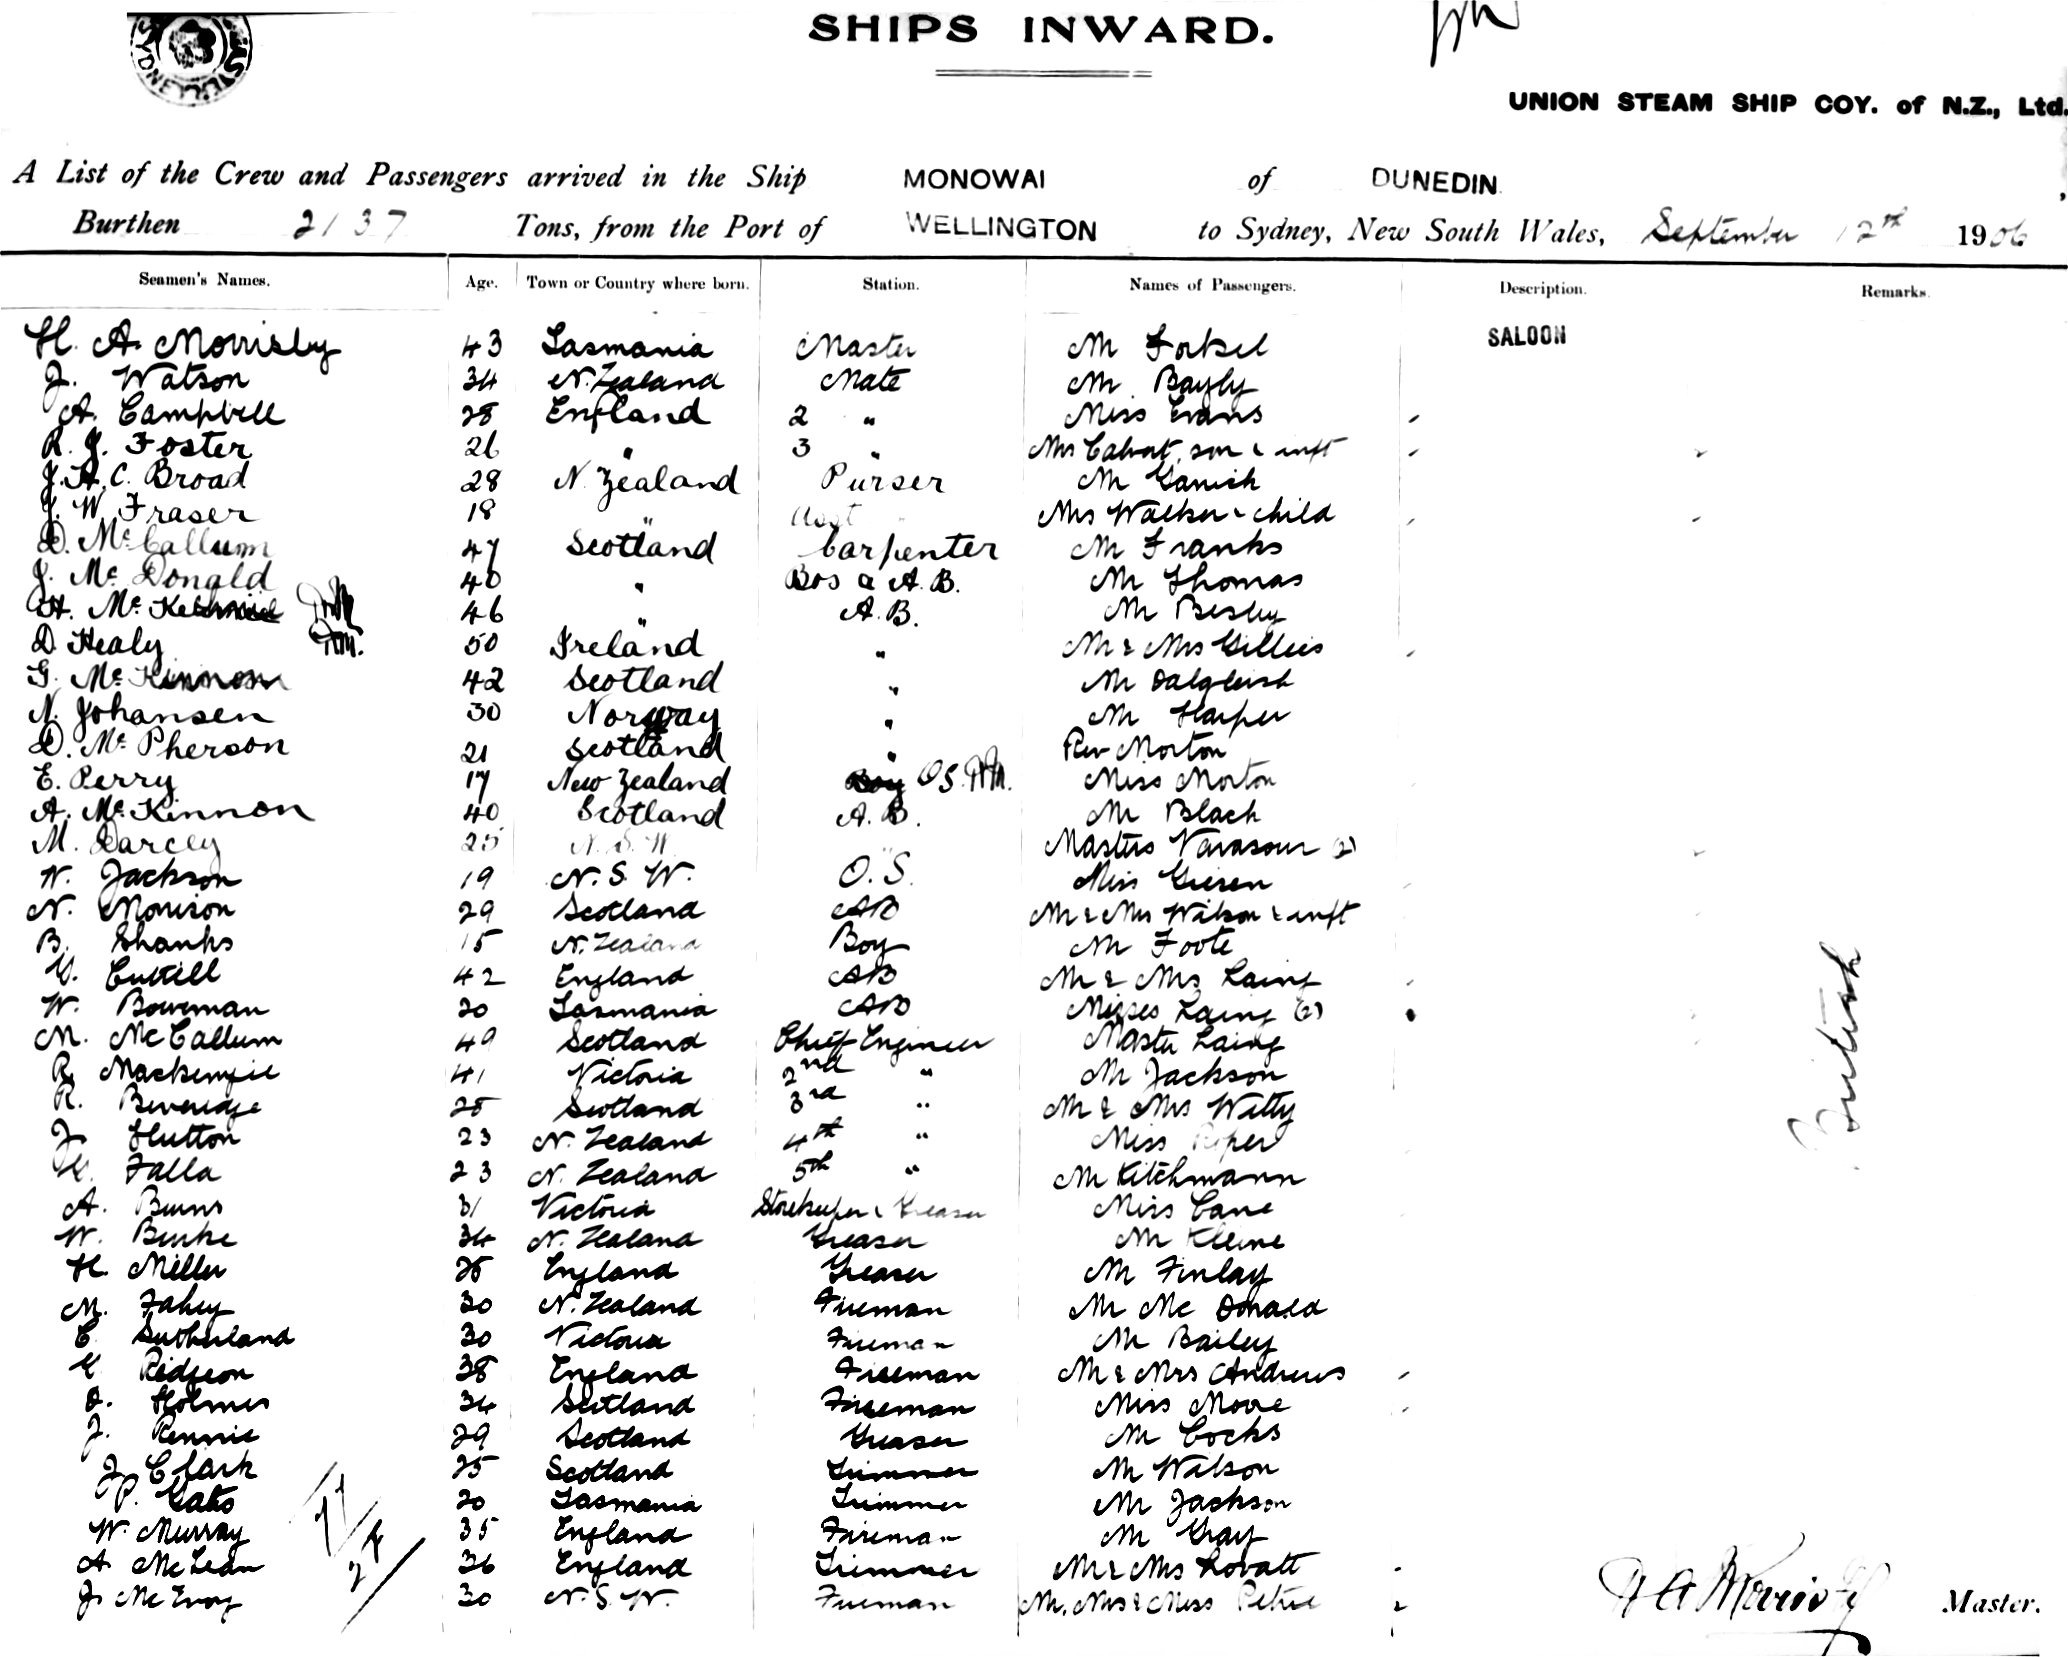 SHIPS INWARD.
SYDNEY
UNION STEAM SHIP COY. of N.Z., Ltd.
A List of the Crew and Passengers arrived in the Ship MONOWAI of DUNEDIN
Burthen 2137 Tons, from the Port of WELLINGTON to Sydney, New South Wales, September 12th 1906
Seamen's Names. Age. Town or Country where born. Station. Names of Passengers. Description. Remarks.
SALOON
H. A. Morrisby 43 Tasmania Master Mr Forbsel
J. Watson 34 N. Zealand Mate Mr Bayly
A. Campbell 28 England 2 " Miss Evans
R. J. Foster 26 " 3 " Mrs Calvert, son & inft
J. H. C. Broad 28 N. Zealand Purser Mr Garrish
J. W. Fraser 18 " Asst " Mrs Walker & child
D. McCallum 47 Scotland Carpenter Mr Franks
J. McDonald 40 " Bos & A.B. Mr Thomas
H. Mc 46 " A.B. Mr Besley
D Healy 50 Ireland " Mr & Mrs Gillies
G. McKinnon 42 Scotland " Mr Dalgleish
N. Johansen 30 Norway " Mr Harper
D. McPherson 21 Scotland " Rev Morton
E. Perry 17 New Zealand Boy O.S. Miss Morton
A. McKinnon 40 Scotland A.B. Mr Black
M. Darcey 25 N.S.W. " Masters Vavasour (2)
W. Jackson 19 N.S.W. O.S. Miss Giesen
N. Morrison 29 Scotland AB Mr & Mrs Wilson & inft
B. Shanks 15 N. Zealand Boy Mr Foote
G. Cuttell 42 England AB Mr & Mrs Laing
W. Bowman 20 Tasmania AB Misses Laing (2)
M. McCallum 49 Scotland Chief Engineer Master Laing
R. Mackenzie 41 Victoria 2nd " Mr Jackson
R. Beveridge 28 Scotland 3rd " Mr & Mrs Witty
J. Hutton 23 N. Zealand 4th " Miss Piper
G. Falla 23 N. Zealand 5th " Mr Kitchmann
A. Burns 31 Victoria Storekeeper & Greaser Miss Cane
W. Burke 34 N. Zealand Greaser Mr Kleine
H. Miller 28 England Greaser Mr Finlay
M. Fahey 30 N. Zealand Fireman Mr McDonald
C Sutherland 30 Victoria Fireman Mr Bailey
G Ridgeon 38 England Fireman Mr & Mrs Andrews
D. Holmes 34 Scotland Fireman Miss Moore
J. Rennie 29 Scotland Greaser Mr Cocks
J. Clark 25 Scotland Trimmer Mr Watson
P. Gates 20 Tasmania Trimmer Mr Jackson
W. Murray 35 England Fireman Mr Gray
A McLean 36 England Trimmer Mr & Mrs Lovatt
J. McEvoy 30 N.S.W. Fireman Mr, Mrs & Miss Petrie
British
H A Morrisby Master.